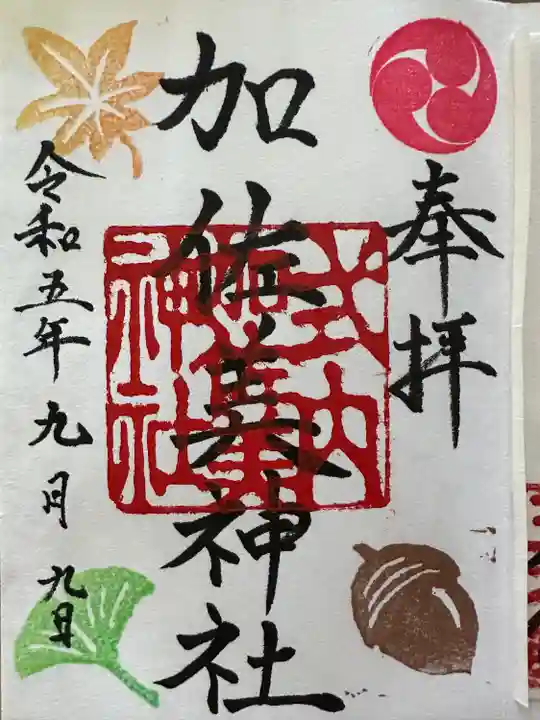 奉拝
加佐美神社
式内
加佐美
神社
令和五年九月九日